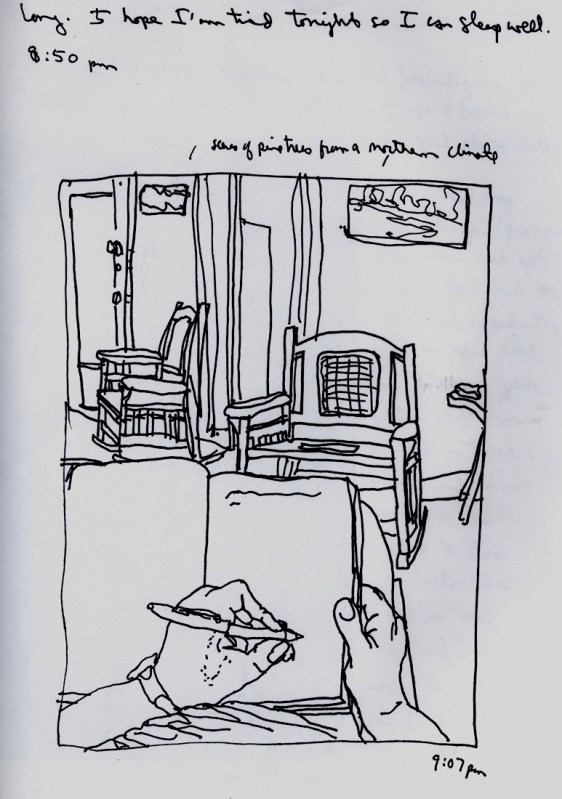 long. I hope I'm tired tonight so I can sleep well.
8:50 pm
of pine trees from a northern climate
9:07 pm